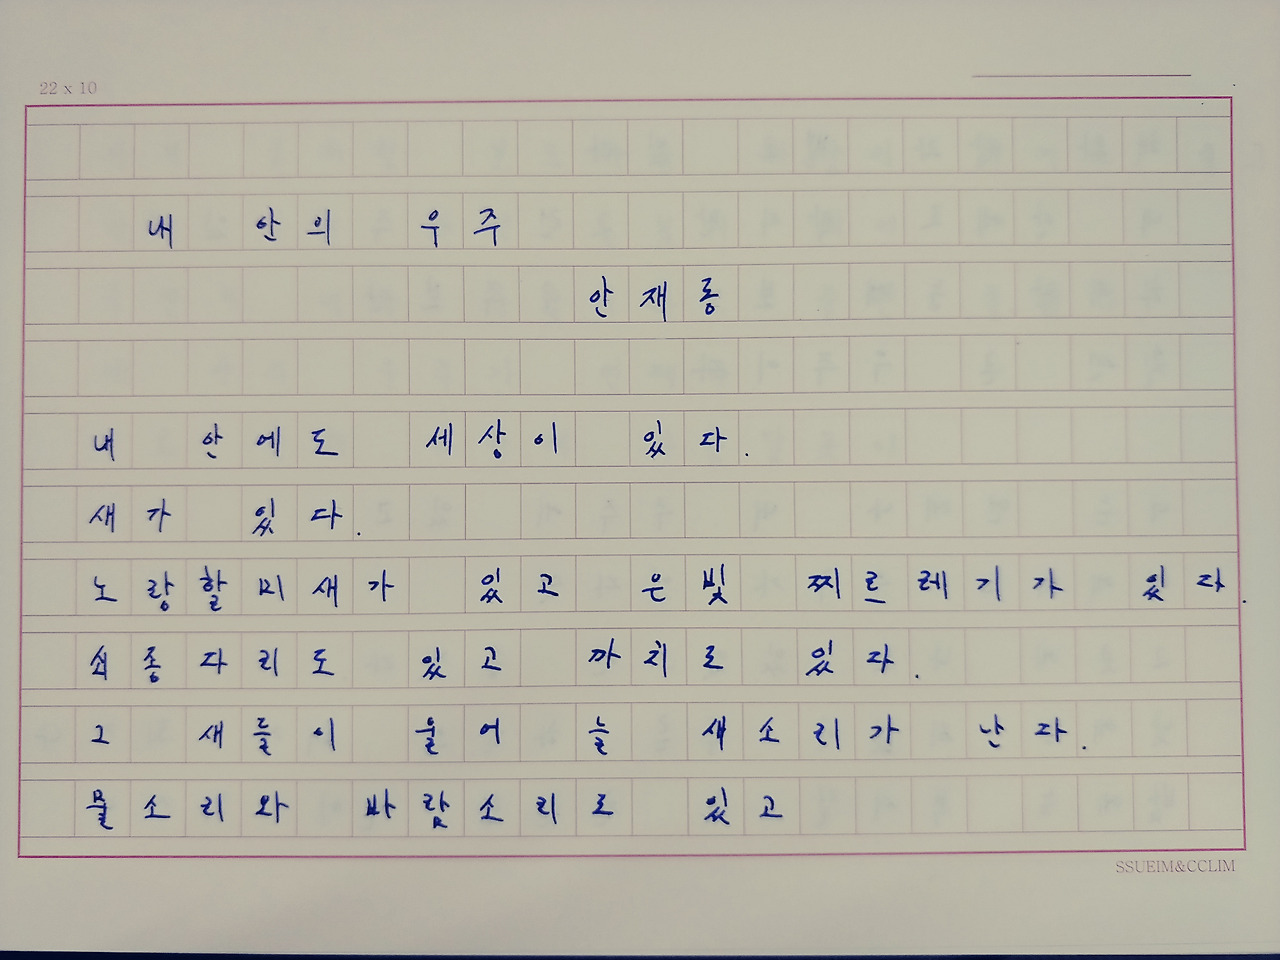 22 x 10
내 안의 우주
안재동
내 안에도 세상이 있다.
새가 있다.
노랑할미새가 있고 은빛 찌르레기가 있다.
쇠종다리도 있고 까치도 있다.
그 새들이 울어 늘 새소리가 난다.
물소리와 바람소리도 있고
SSUEIM&CCLIM